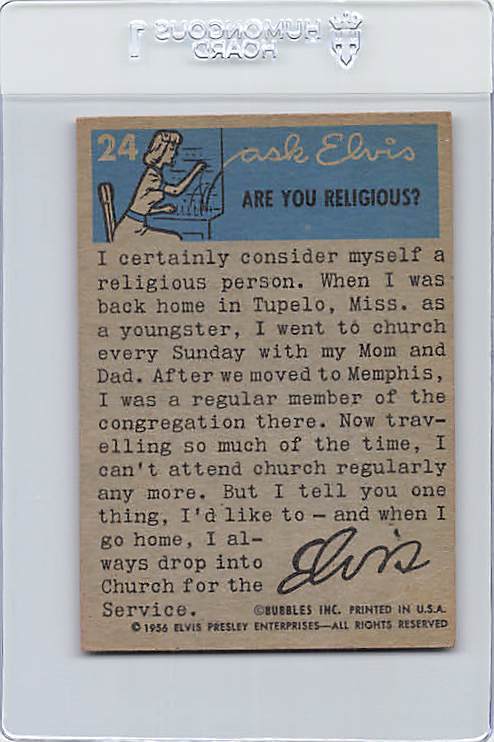 HUMONGOUS
HOARD
24
ask Elvis
ARE YOU RELIGIOUS?
I certainly consider myself a
religious person. When I was
back home in Tupelo, Miss. as
a youngster, I went to church
every Sunday with my Mom and
Dad. After we moved to Memphis,
I was a regular member of the
congregation there. Now trav-
elling so much of the time, I
can't attend church regularly
any more. But I tell you one
thing, I'd like to — and when I
go home, I al-
ways drop into
Church for the
Service.
Elvis
©BUBBLES INC. PRINTED IN U.S.A.
© 1956 ELVIS PRESLEY ENTERPRISES—ALL RIGHTS RESERVED